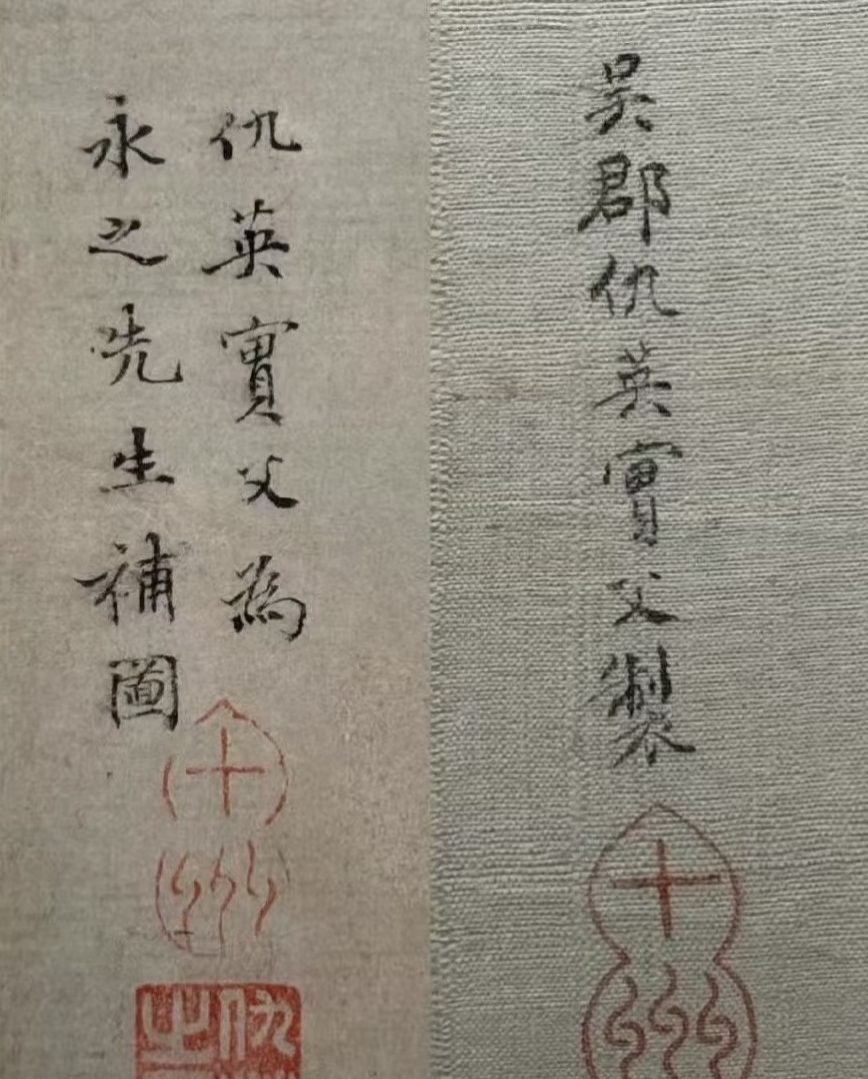 仇英實父為
永之先生補圖
十洲
仇
之
吳郡仇英實父製
十洲